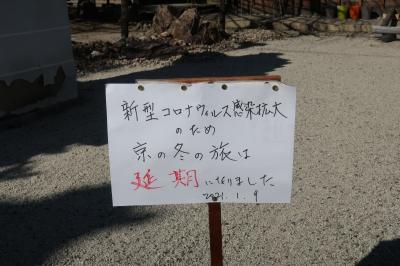 新型コロナウィルス感染拡大
のため
京の冬の旅は
延期になりました
2021.1.9